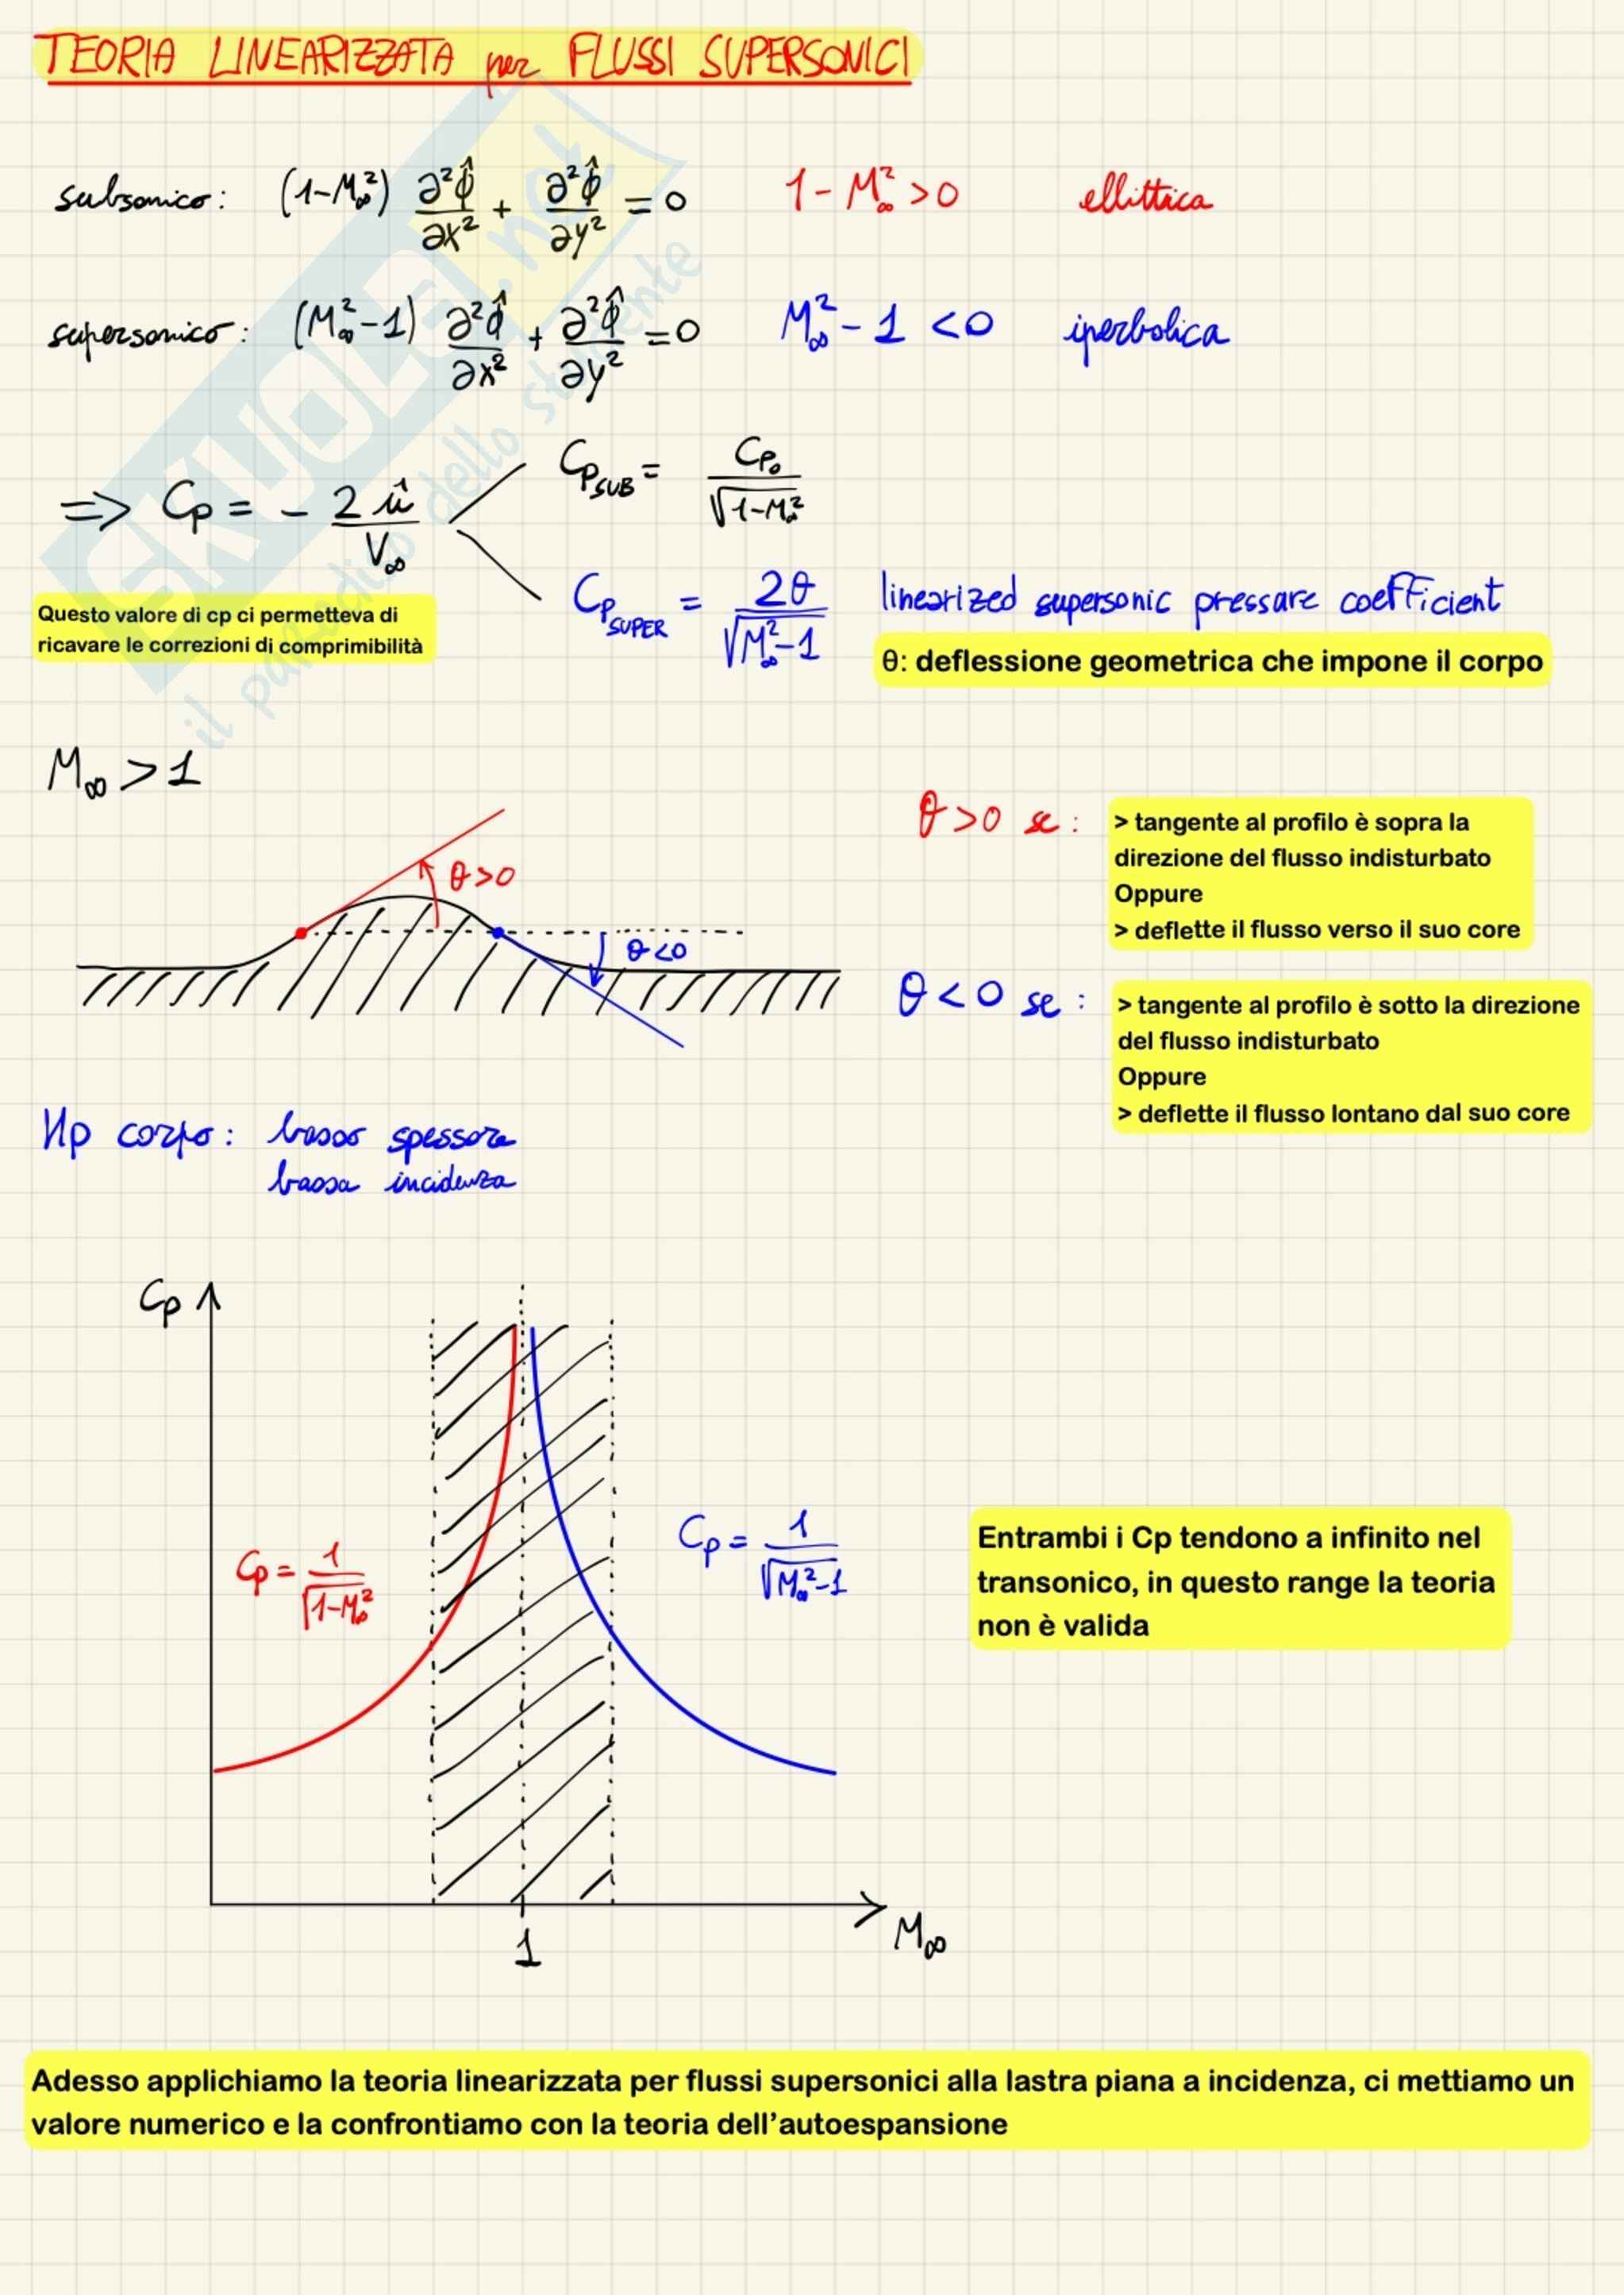 TEORIA LINEARIZZATA per FLUSSI SUPERSONICI
subsonico: (1-M∞²) ∂²φ̂/∂x² + ∂²φ̂/∂y² = 0 1-M∞² > 0 ellittica
supersonico: (M∞²-1) ∂²φ̂/∂x² + ∂²φ̂/∂y² = 0 M∞²-1 < 0 iperbolica
=> Cp = - 2û/V∞
CpSUB = Cp₀/√1-M∞²
CpSUPER = 2θ/√M∞²-1 linearized supersonic pressare coefficient
Questo valore di cp ci permetteva di
ricavare le correzioni di comprimibilità
θ: deflessione geometrica che impone il corpo
M∞ > 1
θ>0
θ<0
θ>0 se:
> tangente al profilo è sopra la
direzione del flusso indisturbato
Oppure
> deflette il flusso verso il suo core
θ<0 se:
> tangente al profilo è sotto la direzione
del flusso indisturbato
Oppure
> deflette il flusso lontano dal suo core
Hp corpo: basso spessore
bassa incidenza
Cp
Cp = 1/√1-M∞²
Cp = 1/√M∞²-1
Entrambi i Cp tendono a infinito nel
transonico, in questo range la teoria
non è valida
1
M∞
Adesso applichiamo la teoria linearizzata per flussi supersonici alla lastra piana a incidenza, ci mettiamo un
valore numerico e la confrontiamo con la teoria dell'autoespansione
SKUOLA.net
il paradiso dello studente